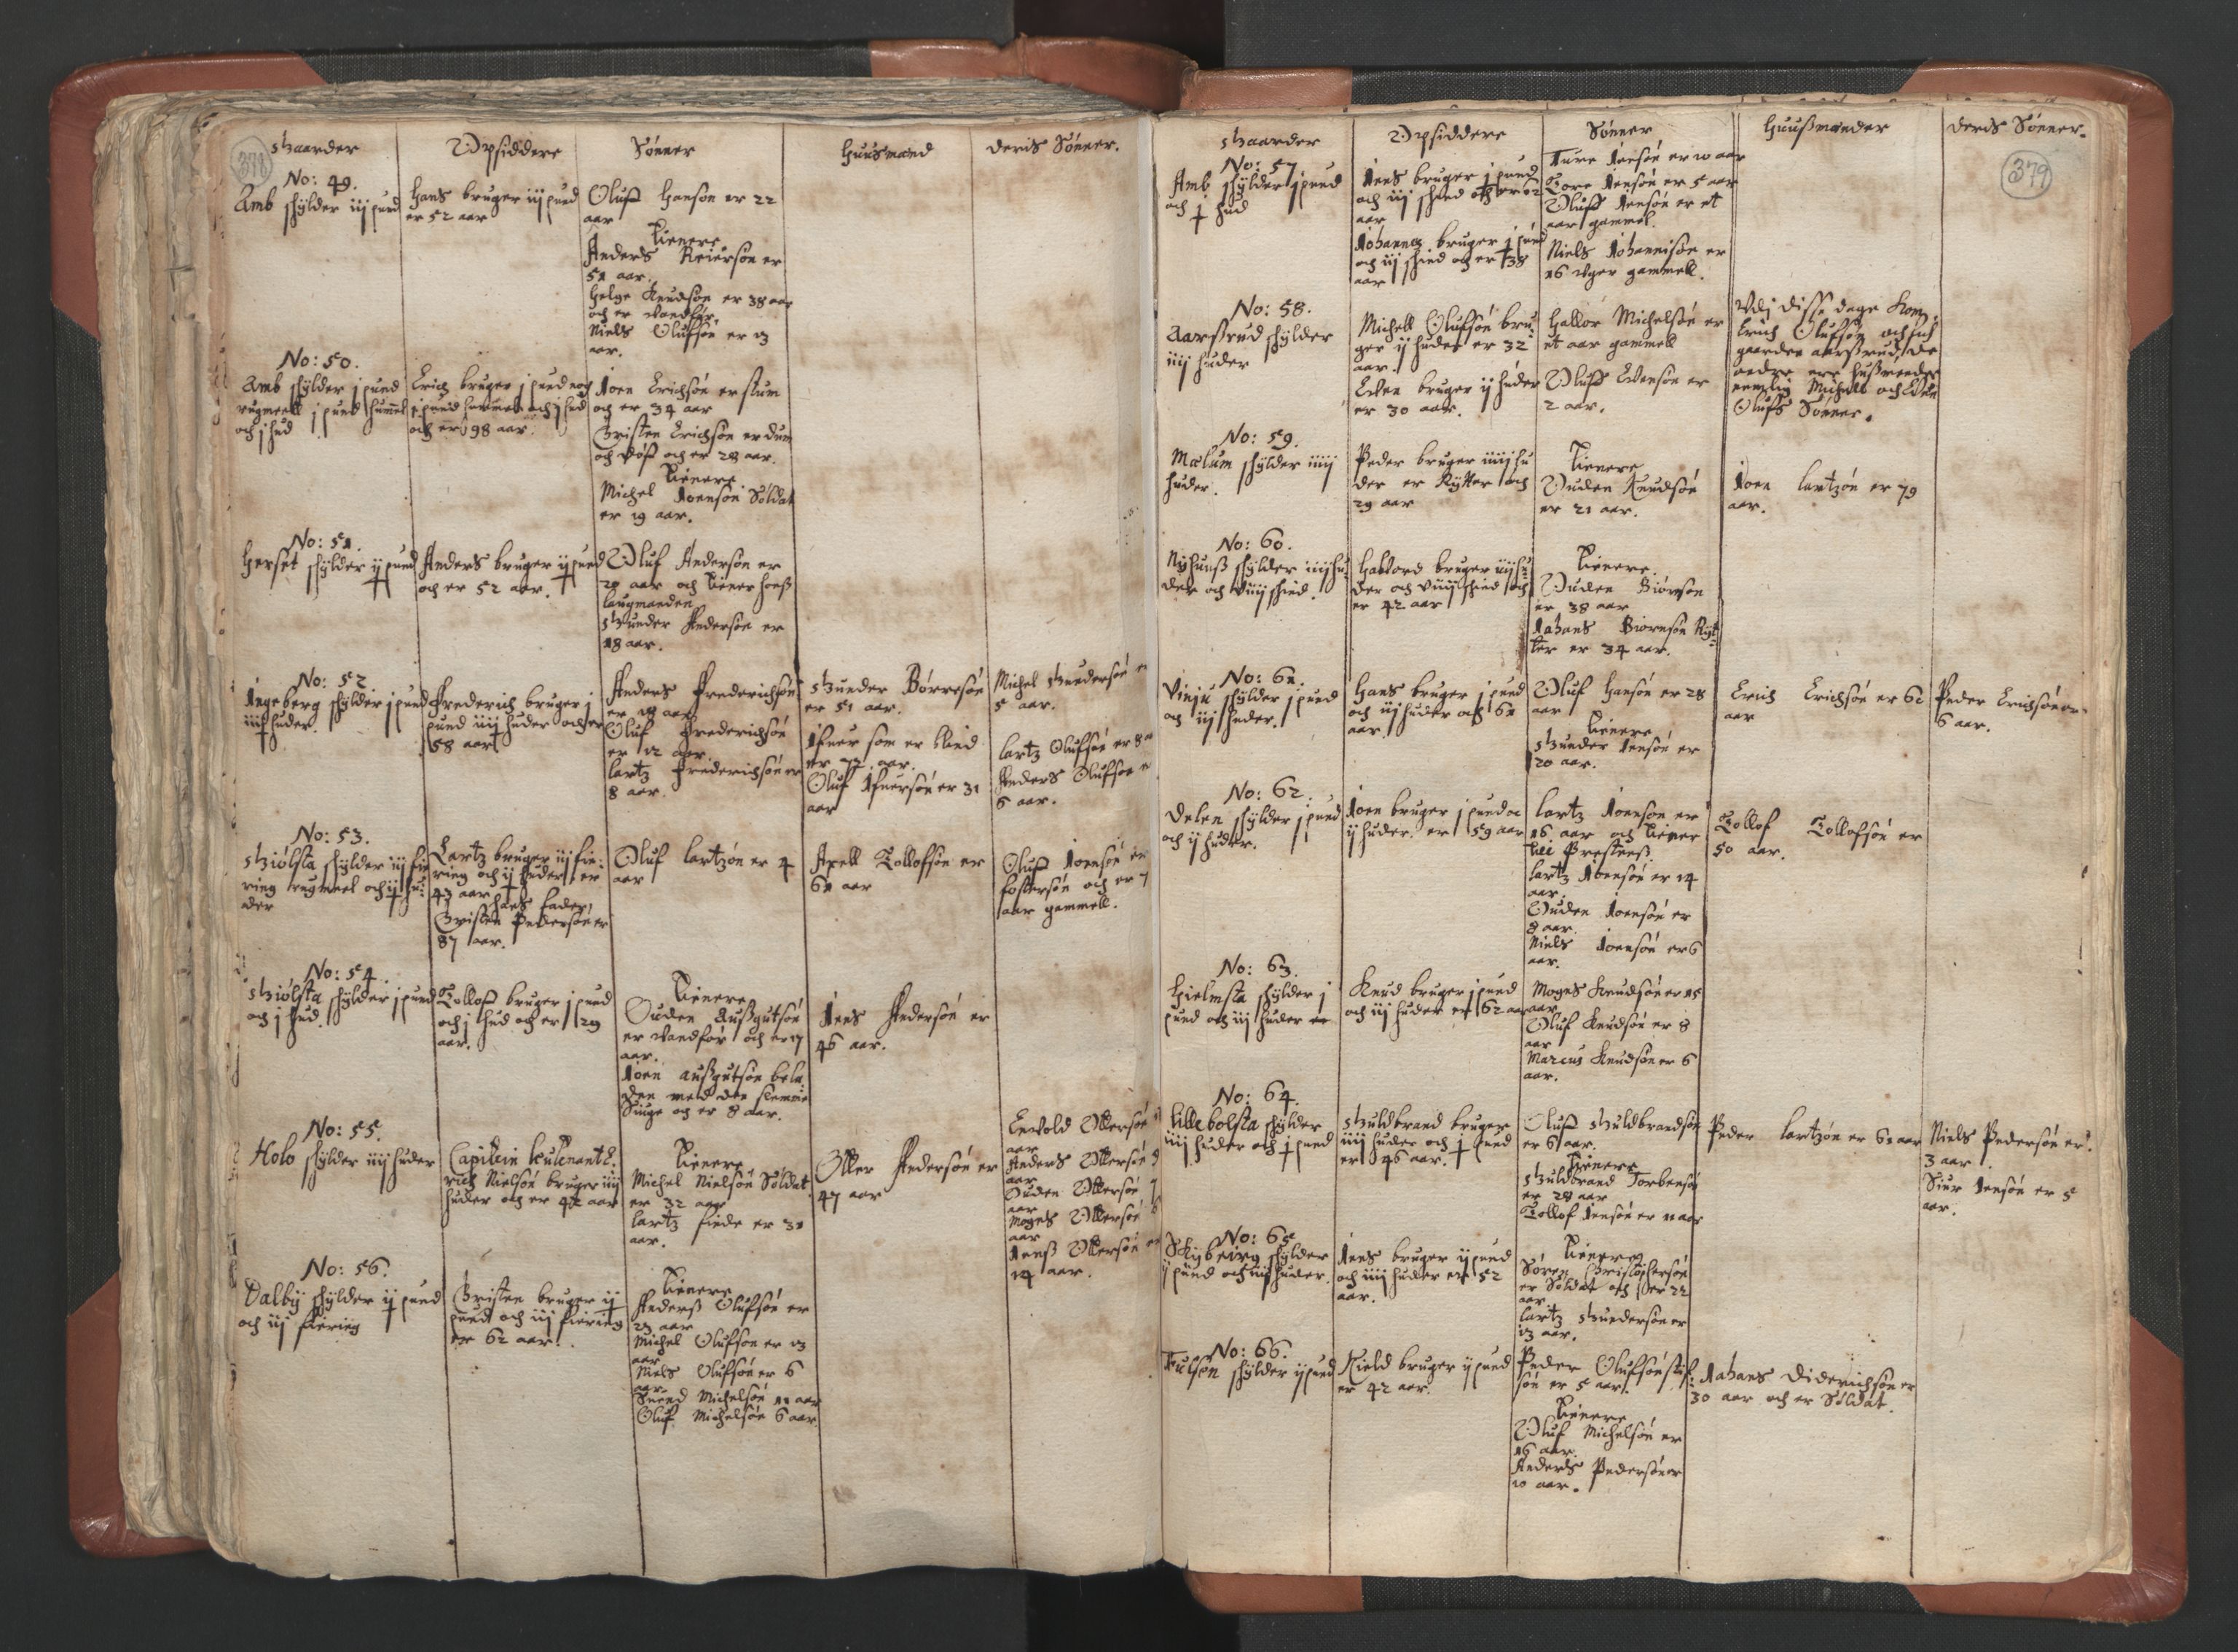 378
Gaarder Opsiddere Sønner Huusmænd deris Sønner.
No: 49.
Amb schylder iij pund
Hans bruger iij pund
er 52 aar
Oluff Hanson er 22
aar
Tienere
Anders Reierson er
51 aar.
Helge Knudsøn er 38 aar
och er vanfør.
Niels Olufsøn er 13
aar.
No: 50.
Amb schylder j pund
rugmeell j pund hummel
och j hud
Erich bruger j pund rog
j pund hummel och j hud
och er 98 aar.
Joen Erichsøn er stum
och er 34 aar
Christen Erichsøn er dum
och døff och er 28 aar.
Tienere
Michel Joensøn Soldat
er 19 aar.
No: 51.
Herset schylder ij pund
Anders bruger ij pund
och er 52 aar.
Oluf Andersøn er
20 aar och tiener hoeß
laugmanden
Gunder Andersøn er
18 aar.
No: 52
Ingeberg schylder j pund
iiij huder.
Frederich bruger j
pund iiij huder och er
58 aar
Anders Frederichsøn
er 18 aar
Oluf Frederichsøn
er 12 aar.
Lartz Frederichsøn er
8 aar.
Gunder Børresøn
er 51 aar.
Ifuer som er blind
er 77 aar.
Oluf Ifuersøn er 31
aar
Michel Gundersøn er
5 aar.
Lartz Olufsøn er 8
Anders Olufsøn er
6 aar.
No: 53.
Giølsta schylder iij fie
ring rugmeel och ij hu:
der
Lartz bruger iij fie:
ring och ij huder er
43 aar hans fader
Christen Pedersøn er
87 aar.
Oluf Lartzøn er 4
aar
Axell Tolloffsøn er
61 aar
Oluff Joensøn er
fostersøn och er 7
aar gammell.
No: 54
Giølsta schylder j pund
och j hud.
Tolloff bruger j pund
och j hud och er 29
aar.
Tienere
Ouden Außgutsøn
er vandfør och er 17
aar.
Joen Außgutsøn bela
den med den slemme
Siuge och er 8 aar.
Jens Andersøn er
46 aar.
No: 55.
Holo schylder iiij huder
Capitein Leutenant E:
rich Nielsøn bruger iiij
huder och er 42 aar
Tienere
Michel Nielsøn Soldat
er 32 aar
Lartz Finde er 31
aar.
Oller Andersøn er
47 aar
Enevold Ollersøn
aar
Anders Ollersøn 9
aar
Ouden Ollersøn 7
aar
Mogns Ollersøn 6
aar
Jenß Ollersøn er
14 aar.
No: 56.
Dalby schylder ij pund
och iij fiering
Christen bruger ij
pund och iij fiering
er 62 aar.
Tienere
Anderß Olufsøn er
23 aar
Michel Olufsøn er 13
aar
Niels Olufsøn er 6
aar.
Suend Michelsøn 11 aar
Oluf Michelsøn 6 aar
379
Gaarder Opsiddere Sønner Huußmænder deris Sønner.
No: 57
Amb schylder j pund
och j hud
Jens bruger j pund
och iij schind och er 62
aar
Johannes bruger j pund
och iij schind och er 38
aar
Ture Jensøn er 10 aar
Tore Jensøn er 5 aar
Oluff Jensøn er et
aar gammel.
Niels Johannisøn er
16 Uger gammell.
No: 58.
Aarßrud schylder
iiij huder
Michell Olufsøn bru
ger ij huder er 32
aar.
Even bruger ij huder
er 30 aar.
Hallvor Michelsøn er
et aar gammell
Oluff Evensøn er
2 aar.
Udj disse dage kom
Erich Olufsøn och fich
gaarden Aarßrud, de
andre ere hußmænder
nemlig Michell och Even
Olufs Sønner.
No: 59.
Mælum schylder iiiij
huder.
Peder bruger iiiij hu
der er Rytter och
29 aar
Tienere
Ouden Knudsøn
er 21 aar.
Joen Lartzøn er 79
aar.
No: 60.
Nyhuuß schylder iiij hu:
der och viiij schind.
Haltord bruger iiij hu:
der och viiij schind och
er 42 aar
Tienere.
Ouden Biørnsøn
er 38 aar
Johans Biørnsøn Ryt:
ter er 34 aar.
No: 61.
Vinju schylder j pund
och iij huder.
Hans bruger j pund
och iij huder och 61
aar.
Oluf Hansøn er 28
aar
Tienere
Gunder Jensøn er
20 aar.
Erich Erichsøn er 62
aar
Peder Erichsøn er
6 aar.
No: 62.
Delen schylder j pund
och ij huder.
Joen bruger j pund oc
ij huder er 59 aar
Lartz Joensøn er
16 aar och tiener
till Prestens.
Lartz Joensøn er 14
aar.
Ouden Joensøn er
8 aar.
Niels Joensøn er 6
aar.
Tollof Tollofsøn er
50 aar.
No: 63.
Hielmsta schylder j
pund och iij huder
Knud bruger j pund
och iij huder er 62 aar
Mogns Knudsøn er 15
aar
Oluf Knudsøn er 8
aar
Marcus Knudsøn er 6
aar.
No: 64.
Lillebolsta schylder
iiij huder och j pund
Guldbrand bruger
iiij huder och j pund
er 46 aar.
Oluff Guldbrandsøn
er 6 aar.
Tienere
Guldbrand Torbensøn
er 28 aar
Tollof Jensøn er 11 aar
Peder Lartzøn er 61 aar
Niels Pedersøn er
3 aar
Siur Jensøn er 5
aar.
No: 65
Skyberg schylder
ij pund och iiij huder.
Jens bruger ij pund
och iiij huder er 52
aar.
Tienere
Søren Christophersøn
er Soldat och er 22
aar
Lartz Gundersøn er
13 aar.
No: 66.
Fulsøn schylder ij pund
Kield bruger ij pund
er 42 aar.
Peder Olufsøn stif:
søn er 5 aar.
Tienere
Oluf Michelsøn er
16 aar.
Anders Pedersøn er
10 aar.
Johans Diderichsøn er
30 aar och er Soldat.